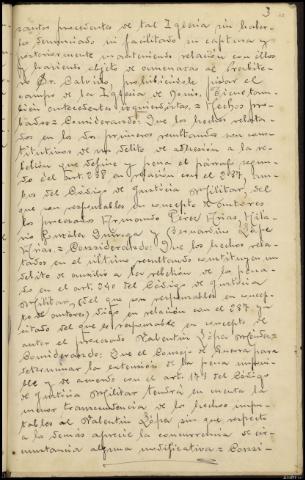 3
santos procedentes de tal Iglesia sin haber
lo denunciado ni facilitado su captura y
posteriormente mantenimiento relación con ellos
y haciendo objeto de amenazas al Presbíte-
ro Dr. Calviño, prohibiéndole pisar el
campo de la Iglesia de Tiene tam-
bién antecedentes izquierdistas. = Hechos pro-
bados = Considerando: Que los hechos relata-
dos en los dos primeros resultandos son cons-
titutivos de un delito de adhesión a la re-
belión que define y pena el párrafo segun-
do del art. 238 en relación con el 237, am-
bos del Código de Justicia Militar, del
que son responsables en concepto de autores
los procesados Armando Pérez Arias, Hila-
rio González Quiroga y Bernardino López
Arias = Considerando: Que los hechos rela-
tados en el último resultando constituyen un
delito de auxilio a la rebelión de los pena-
dos en el art. 240 del Código de Justicia
Militar, del que son responsables en concep-
to de autores, digo en relación con el 237 ya
citado del que es responsable en concepto de
autor el procesado Valentín López =
Considerando: Que el Consejo de Guerra para
determinar la extensión de la pena imponi-
ble y de acuerdo con el art. 173 del Código
de Justicia Militar tendrá en cuenta la
menor trascendencia de los hechos impu-
tables al Valentín López sin que respecto
a los demás aprecie la concurrencia de cir-
cunstancia alguna modificativa = Consi-